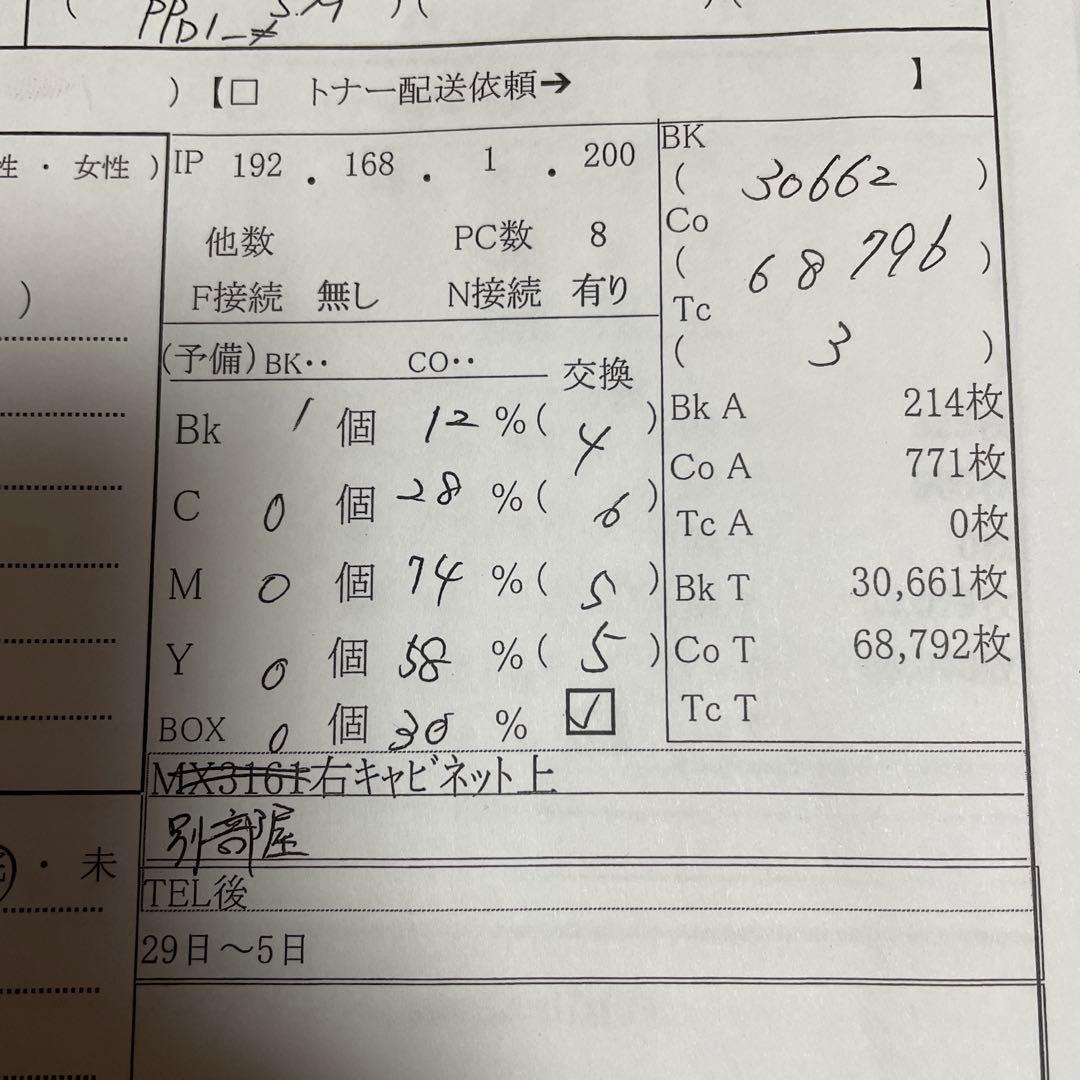 PPD1_≠ S.M )(
) 【□ トナー配送依頼→ 】
性 ・ 女性 )
IP 192 . 168 . 1 . 200
他数 PC数 8
F接続 無し N接続 有り
BK
( 30662 )
Co
( 68796 )
Tc
( 3 )
(予備) BK‥ CO‥ 交換
Bk 1 個 12 %( 4 )
C 0 個 28 %( 6 )
M 0 個 74 %( 5 )
Y 0 個 58 %( 5 )
BOX 0 個 30 % ☑
Bk A 214枚
Co A 771枚
Tc A 0枚
Bk T 30,661枚
Co T 68,792枚
Tc T
MX3161右キャビネット上
別部屋
・ 未
TEL後
29日～5日